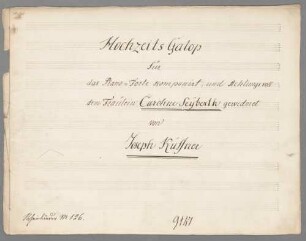 Hochzeits Galop
für
das Piano-Forte komponirt, und Achtungsvoll
dem Fräulein Caroline Seybold gewidmet
von
Joseph Küffner
No 126.
9147